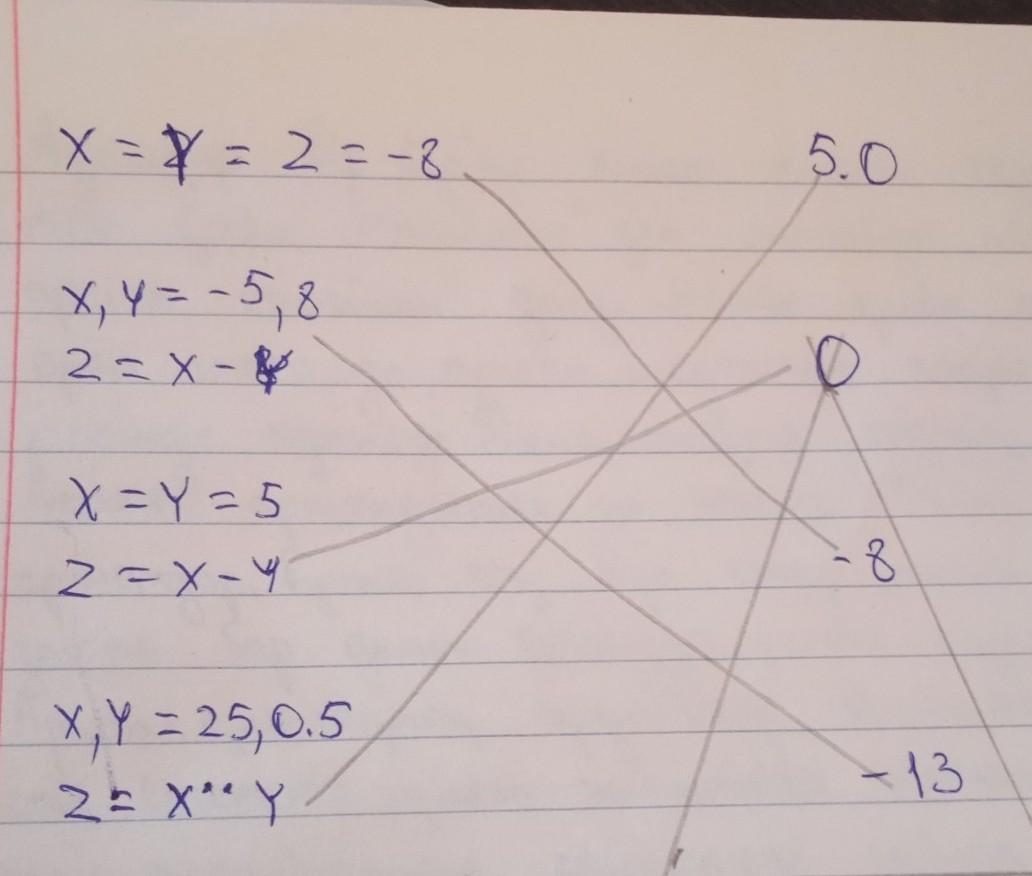 X = Y = Z = -8 5.0
X, Y = -5, 8
Z = X - Y 0
X = Y = 5
Z = X - Y -8
X, Y = 25, 0.5
Z = X** Y -13